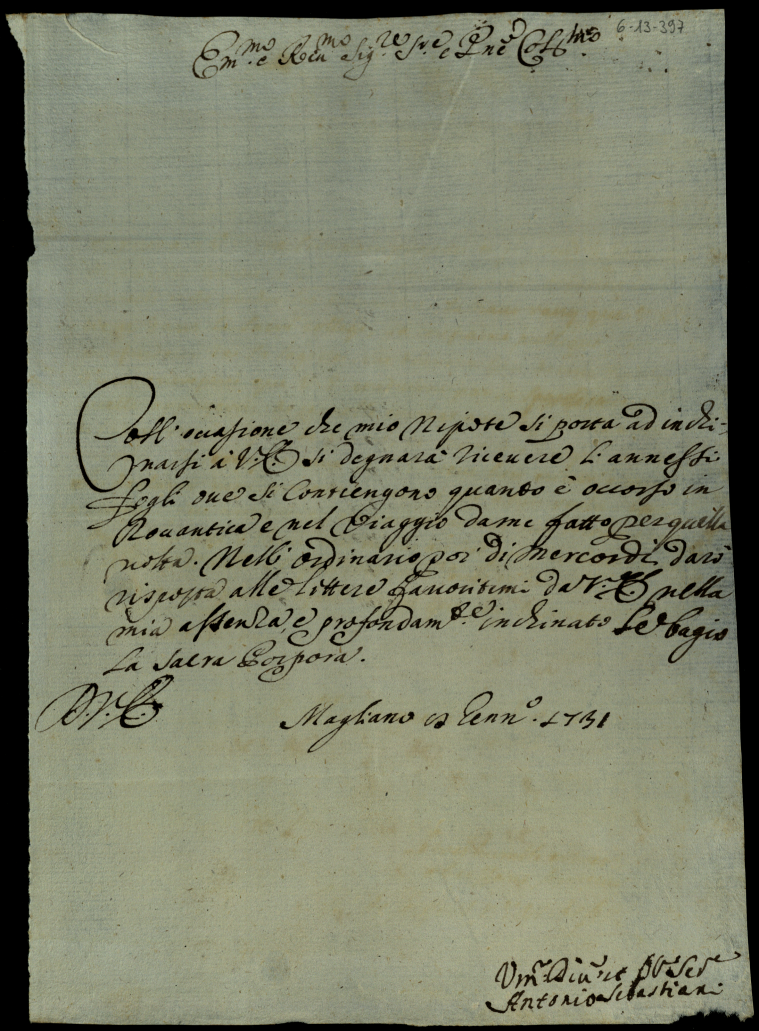 6-13-397
Em.mo e Rev.mo Sig.re Sre e Pne Col.mo
Coll'occasione che mio Nipote si porta ad inchi-
narsi à V.E. si degnarà ricevere li annessi
fogli ove si contengono quanto è occorso in
Rovantica e nel Viaggio da me fatto per quella
volta. Nell'ordinario poi di Mercordì darò
risposta alle littere favoritemi da V.E. nella
mia assenza, e profondam.te inchinato Le bagio
La Sacra Porpora.
D.V.E. Magliano Genn.o 1731
Um.o Div.
Antonio Sebastiani